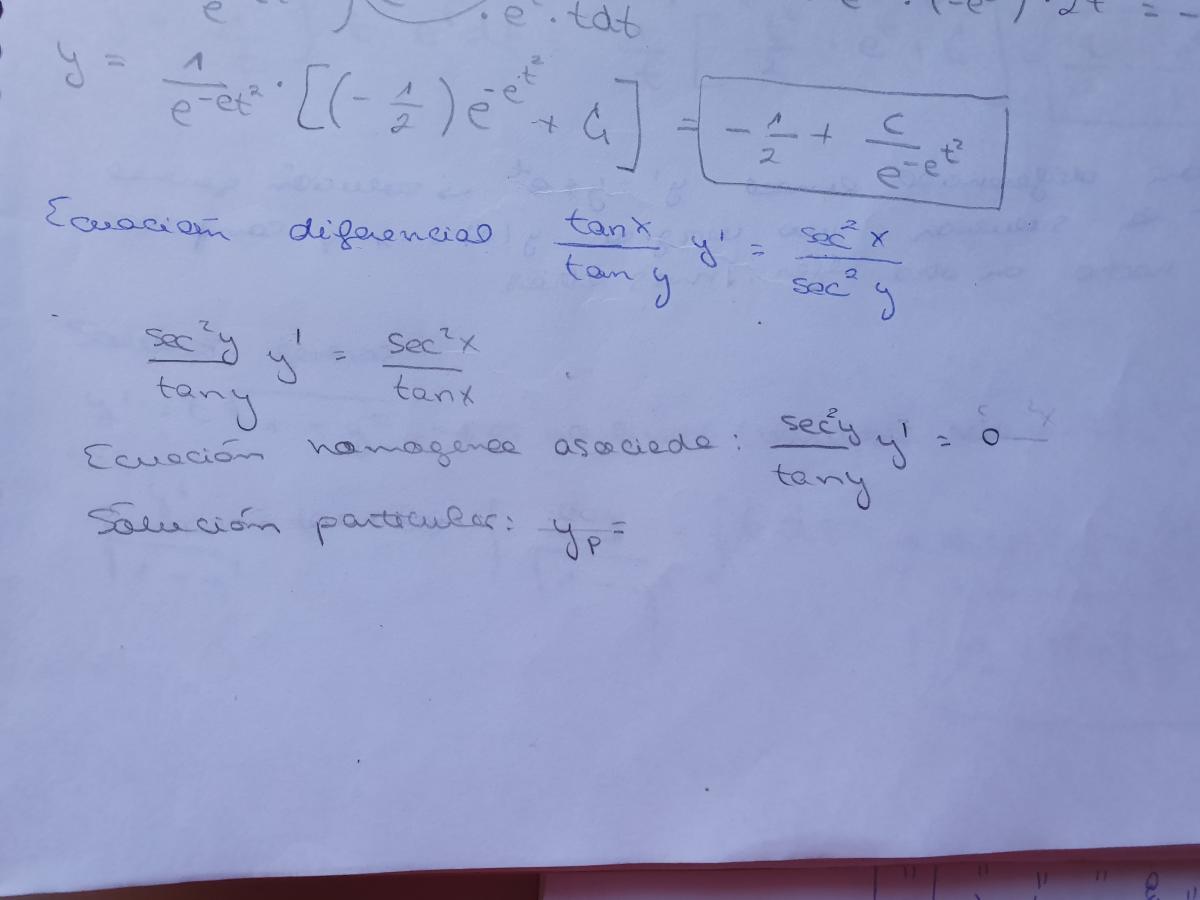 e · e · t dt
y = 1/e^-e^t² · [(-1/2) e^-e^t² + C₁] = -1/2 + C/e^-e^t²
Ecuación diferencial tanx/tan y y' = sec² x/sec² y
sec²y/tany y' = sec²x/tanx
Ecuación homogenea asociada: sec²y/tany y' = 0
Solución particular: y_p =